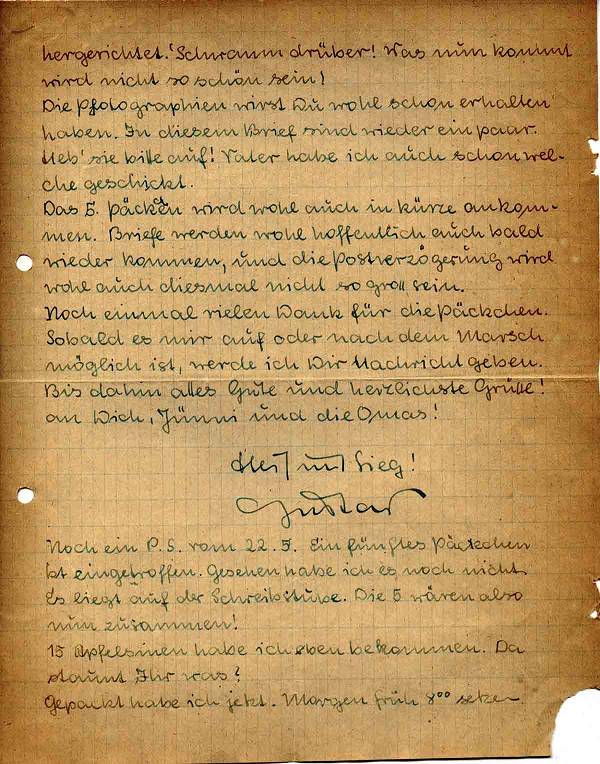 hergerichtet. Schwamm drüber! Was nun kommt
wird nicht so schön sein!
Die Photographien wirst Du wohl schon erhalten
haben. In diesem Brief sind wieder ein paar.
Heb' sie bitte auf! Vater habe ich auch schon wel-
che geschickt.
Das 5. Päckchen wird wohl auch in kürze ankom-
men. Briefe werden wohl hoffentlich auch bald
wieder kommen, und die Postverzögerung wird
wohl auch diesmal nicht so groß sein.
Noch einmal vielen Dank für die Päckchen.
Sobald es mir auf oder nach dem Marsch
möglich ist, werde ich Dir Nachricht geben.
Bis dahin alles Gute und herzlichste Grüße!
an Dich, Jünni und die Omas!
Heil und Sieg!
Gustav
Noch ein P.S. vom 22.5. Ein fünftes Päckchen
ist eingetroffen. Gesehen habe ich es noch nicht.
Es liegt auf der Schreibstube. Die 5 wären also
nun zusammen!
15 Apfelsinen habe ich eben bekommen. Da
staunt Ihr was?
Gepackt habe ich jetzt. Morgen früh 8⁰⁰ setzen